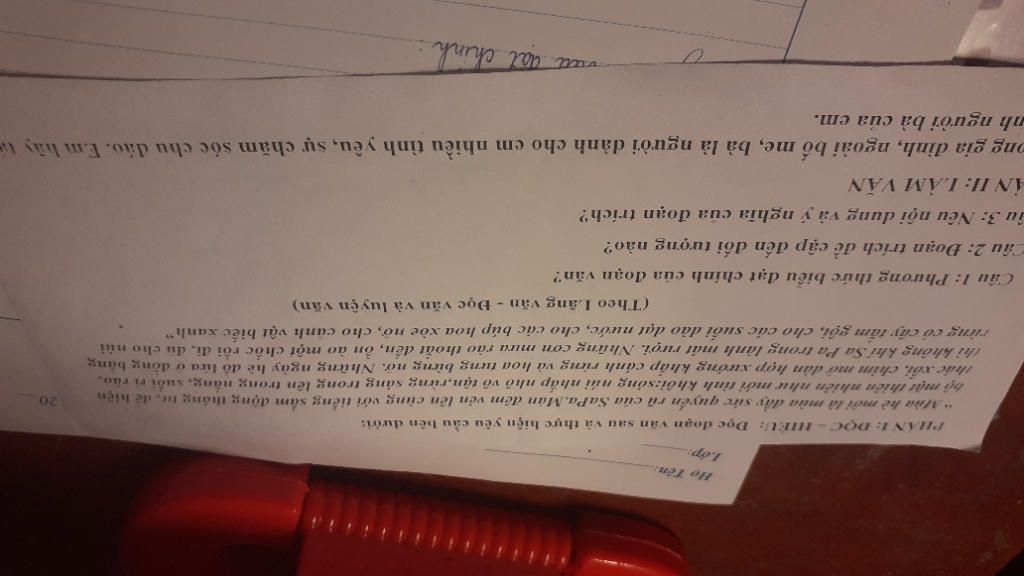 Họ Tên:
Lớp:
PHẦN I: ĐỌC – HIỂU: Đọc đoạn văn sau và thực hiện yêu cầu bên dưới:
20
" Mùa hè mới là mùa đầy sức quyến rũ của SaPa. Màn đêm vén lên cùng với tiếng sấm động tháng tư, để hiện
bộ mặt thiên nhiên như mới tinh khôi: sông núi nhấp nhô vô tận, rừng sáng trong lên trong nắng, suối rì rào,
thác xối, chim mó dàn hợp xướng khắp cánh rừng và hoa tưng bừng nở. Những ngày hè đổ lửa ở đồng bằng
thì không khí Sa Pa trong lành mát rượi. Những cơn mưa rào thoắt đến, ồn ào một chốc rồi đi, đủ cho núi
rừng cỏ cây tắm gội, cho các suối dào dạt nước, cho các búp hoa xòe nở, cho cảnh vật biếc xanh"
(Theo Lăng văn - Đọc văn và luyện văn)
Câu 1: Phương thức biểu đạt chính của đoạn văn?
Câu 2: Đoạn trích đề cập đến đối tượng nào?
âu 3: Nêu nội dung và ý nghĩa của đoạn trích?
ẦN II: LÀM VĂN
ong gia đình, ngoài bố mẹ, bà là người dành cho em nhiều tình yêu, sự chăm sóc chu đáo. Em hãy tả
nh người bà của em.
đạt chính :